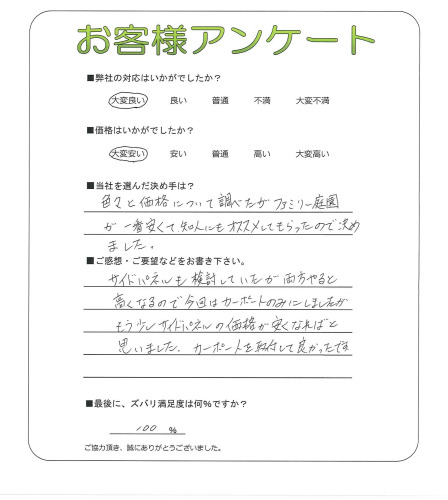 お客様アンケート
■弊社の対応はいかがでしたか？
大変良い 良い 普通 不満 大変不満
■価格はいかがでしたか？
大変安い 安い 普通 高い 大変高い
■当社を選んだ決め手は？
色々と価格について調べたがファミリー庭園
が一番安くて、知人にもオススメしてもらったので決め
ました。
■ご感想・ご要望などをお書き下さい。
サイドパネルも検討していたが両方やると
高くなるので今回はカーポートのみにしましたが
もう少しサイドパネルの価格が安くなればと
思いました。カーポートを取付して良かったです
■最後に、ズバリ満足度は何％ですか？
100 ％
ご協力頂き、誠にありがとうございました。